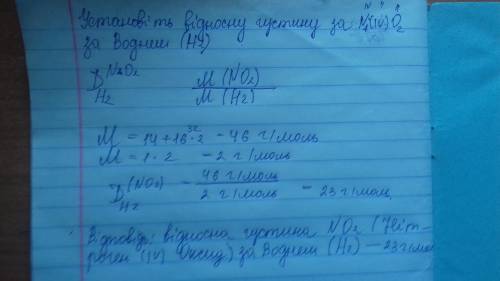 Установіть відносну густину за N(IV)O2
за Воднем (H2)
D N2O2 M (NO2)
H2 M (H2)
32
M = 14 + 16 · 2 - 46 г/моль
M = 1 · 2 - 2 г/моль
D (NO2) - 46 г/моль - 23 г/моль.
H2 2 г/моль
Відповідь: відносна густина NO2 (Нітроген
(IV) Оксид) за Воднем (H2) - 23 г/мол